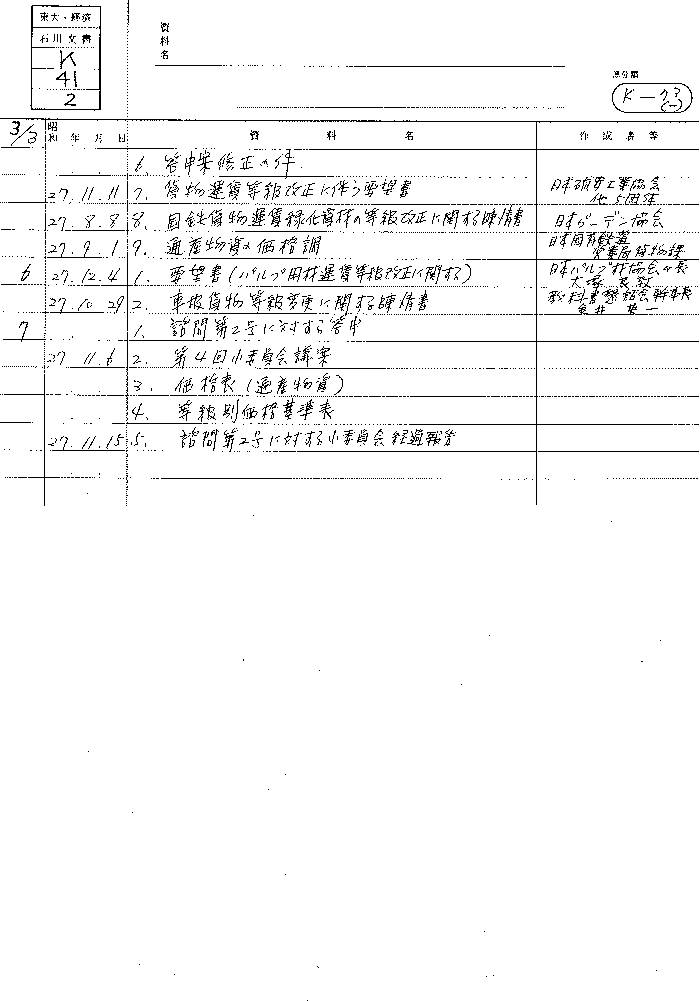 東大・経済
石川文書
K
41
2
資料名
原分類
K-23
(二)
3/3 昭和 年 月 日 資 料 名 作成者等
6. 答申案修正の件
27. 11. 11 7. 貨物運賃等級改正に伴う要望書 日本硝安工業協会
他5団体
27. 8. 8 8. 国鉄貨物運賃緑化資材の等級改正に関する陳情書 日本ガーデン協会
27. 9. 1 9. 通産物資の価格調 日本国有鉄道
営業局貨物課
6 27. 12. 4 1. 要望書(パルプ用材運賃等級改正に関する) 日本パルプ材協会会長
27. 10 29 2. 車扱貨物等級変更に関する陳情書 教科書懇話会幹事長
7 1. 諮問第2号に対する答申
27 11. 6 2. 第4回小委員会議案
3. 価格表(通産物資)
4. 等級別価格基準表
27. 11. 15 5. 諮問第2号に対する小委員会経過報告